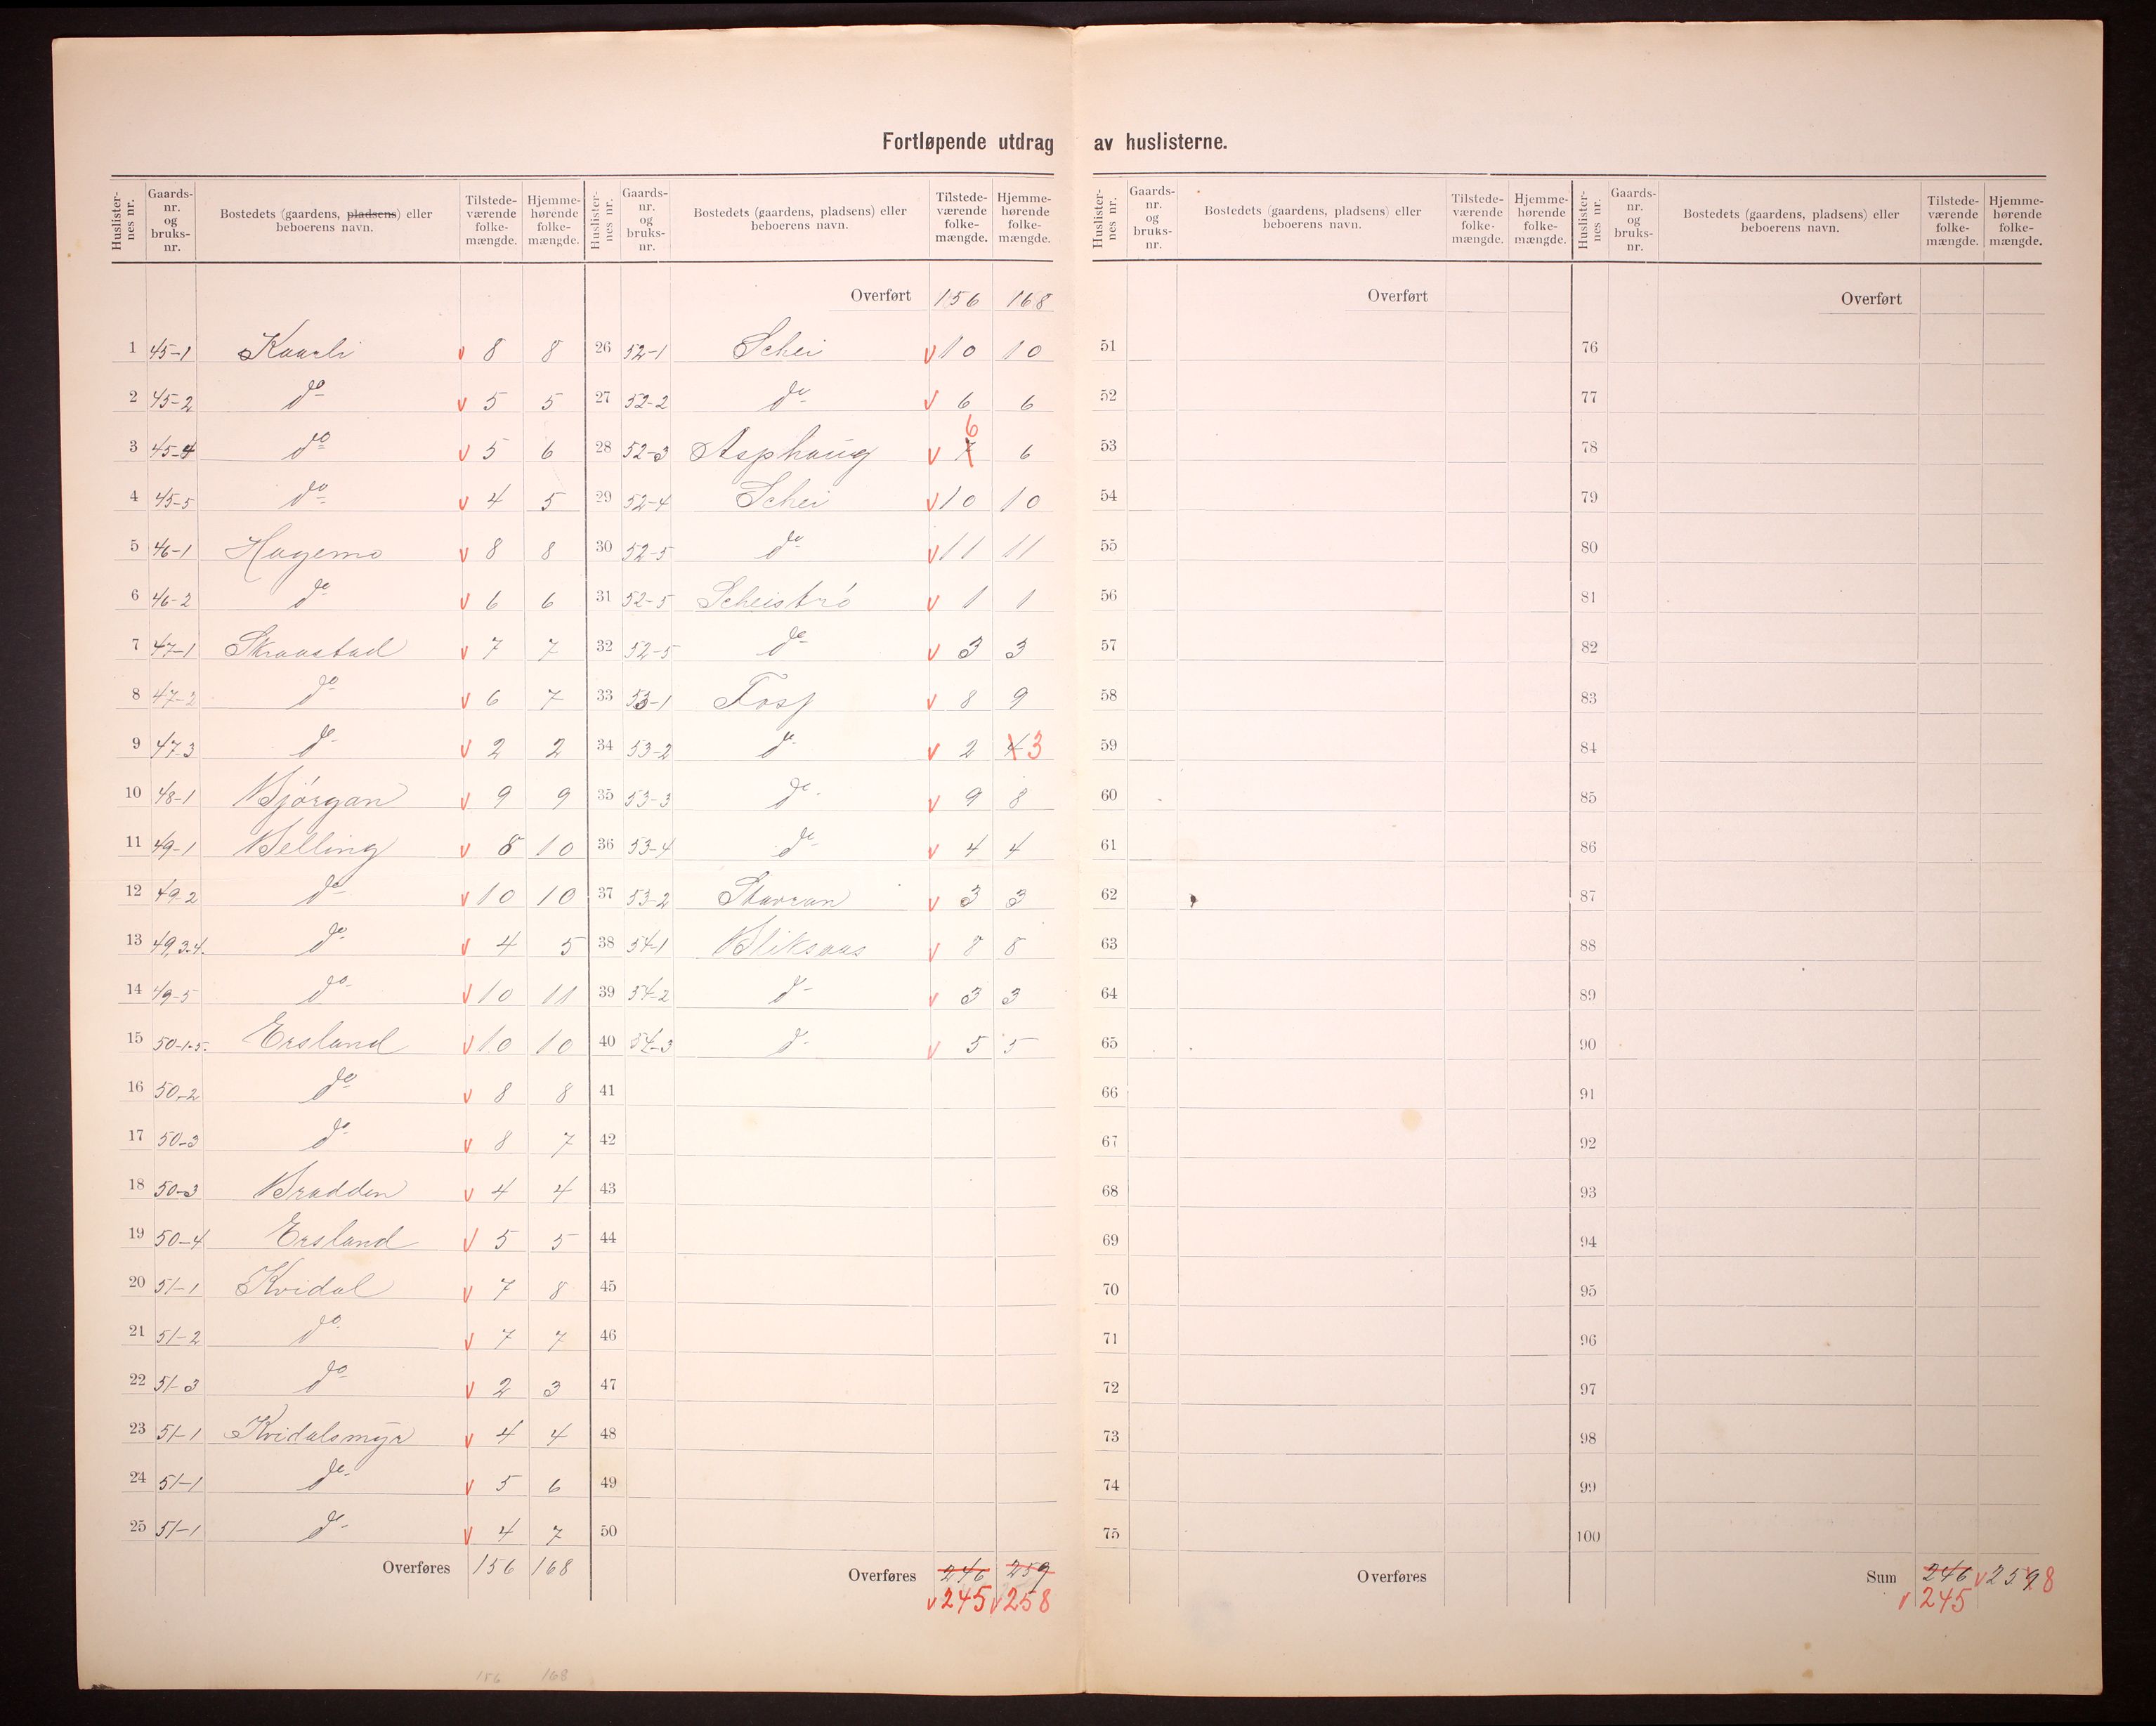 Fortløpende utdrag av huslisterne.
Huslisternes nr. Gaards-nr. og bruks-nr. Bostedets (gaardens, pladsens) eller beboerens navn. Tilstede-værende folke-mængde. Hjemme-hørende folke-mængde.
1 45-1 Kaarli v 8 8
2 45-2 do v 5 5
3 45-4 do v 5 6
4 45-5 do v 4 5
5 46-1 Hagemo v 8 8
6 46-2 do v 6 6
7 47-1 Skraastad v 7 7
8 47-2 do v 6 7
9 47-3 do v 2 2
10 48-1 Bjórgan v 9 9
11 49-1 Belling v 8 10
12 49-2 do v 10 10
13 49,3-4. do v 4 5
14 49-5 do v 10 11
15 50-1-5. Ersland v 10 10
16 50-2 do v 8 8
17 50-3 do v 8 7
18 50-3 Bradden v 4 4
19 50-4 Ersland v 5 5
20 51-1 Kvidal v 7 8
21 51-2 do v 7 7
22 51-3 do v 2 3
23 51-1 Kvidalsmyr v 4 4
24 51-1 do v 5 6
25 51-1 do v 4 7
Overføres 156 168
156 168
Huslisternes nr. Gaards-nr. og bruks-nr. Bostedets (gaardens, pladsens) eller beboerens navn. Tilstede-værende folke-mængde. Hjemme-hørende folke-mængde.
Overført 156 168
26 52-1 Schei v 10 10
27 52-2 do v 6 6
28 52-3 Asphaug v 7 6 6
29 52-4 Schei v 10 10
30 52-5 do v 11 11
31 52-5 Scheistró v 1 1
32 52-5 do v 3 3
33 53-1 Fosf v 8 9
34 53-2 do v 2 4 3
35 53-3 do v 9 8
36 53-4 do v 4 4
37 53-2 Starran v 3 3
38 54-1 Bliksaas v 8 8
39 54-2 do v 3 3
40 54-3 do v 5 5
41
42
43
44
45
46
47
48
49
50
Overføres 246 259
v 245 v 258
Huslisternes nr. Gaards-nr. og bruks-nr. Bostedets (gaardens, pladsens) eller beboerens navn. Tilstede-værende folke-mængde. Hjemme-hørende folke-mængde.
Overført
51
52
53
54
55
56
57
58
59
60
61
62
63
64
65
66
67
68
69
70
71
72
73
74
75
Overføres
Huslisternes nr. Gaards-nr. og bruks-nr. Bostedets (gaardens, pladsens) eller beboerens navn. Tilstede-værende folke-mængde. Hjemme-hørende folke-mængde.
Overført
76
77
78
79
80
81
82
83
84
85
86
87
88
89
90
91
92
93
94
95
96
97
98
99
100
Sum 246 v 259 8
v 245